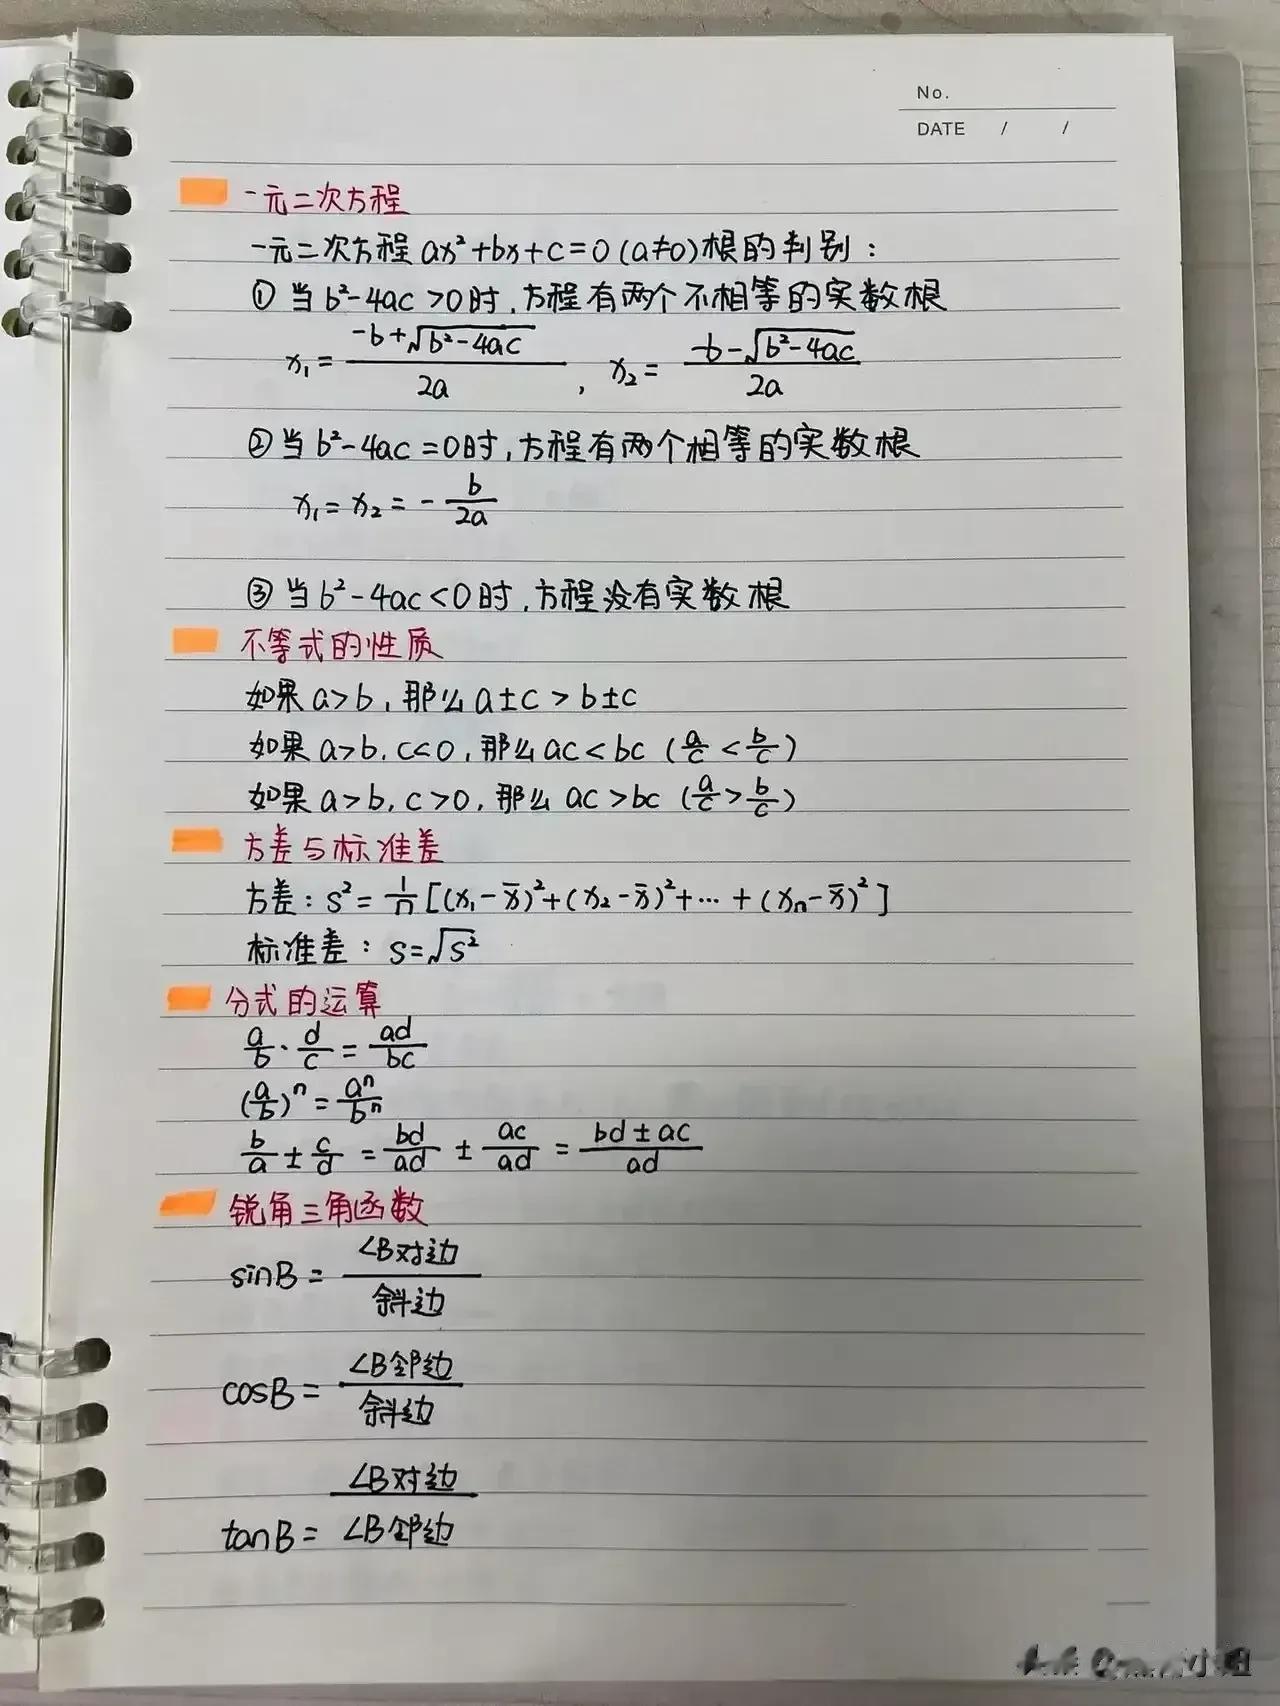 No.
DATE / /
一元二次方程
一元二次方程 ax²+bx+c=0(a≠0)根的判别:
① 当 b²-4ac>0时,方程有两个不相等的实数根
x₁=(-b+√(b²-4ac))/2a, x₂=(-b-√(b²-4ac))/2a
② 当 b²-4ac=0时,方程有两个相等的实数根
x₁=x₂=-b/2a
③ 当 b²-4ac<0时,方程没有实数根
不等式的性质
如果 a>b,那么 a±c>b±c
如果 a>b,c<0,那么 ac<bc (a/c<b/c)
如果 a>b,c>0,那么 ac>bc (a/c>b/c)
方差与标准差
方差:s²=1/n[(x₁-x̄)²+(x₂-x̄)²+…+(xₙ-x̄)²]
标准差:s=√s²
分式的运算
a/b·d/c=ad/bc
(a/b)ⁿ=aⁿ/bⁿ
b/a±c/d=bd/ad±ac/ad=(bd±ac)/ad
锐角三角函数
sinB=∠B对边/斜边
cosB=∠B邻边/斜边
tanB=∠B对边/∠B邻边